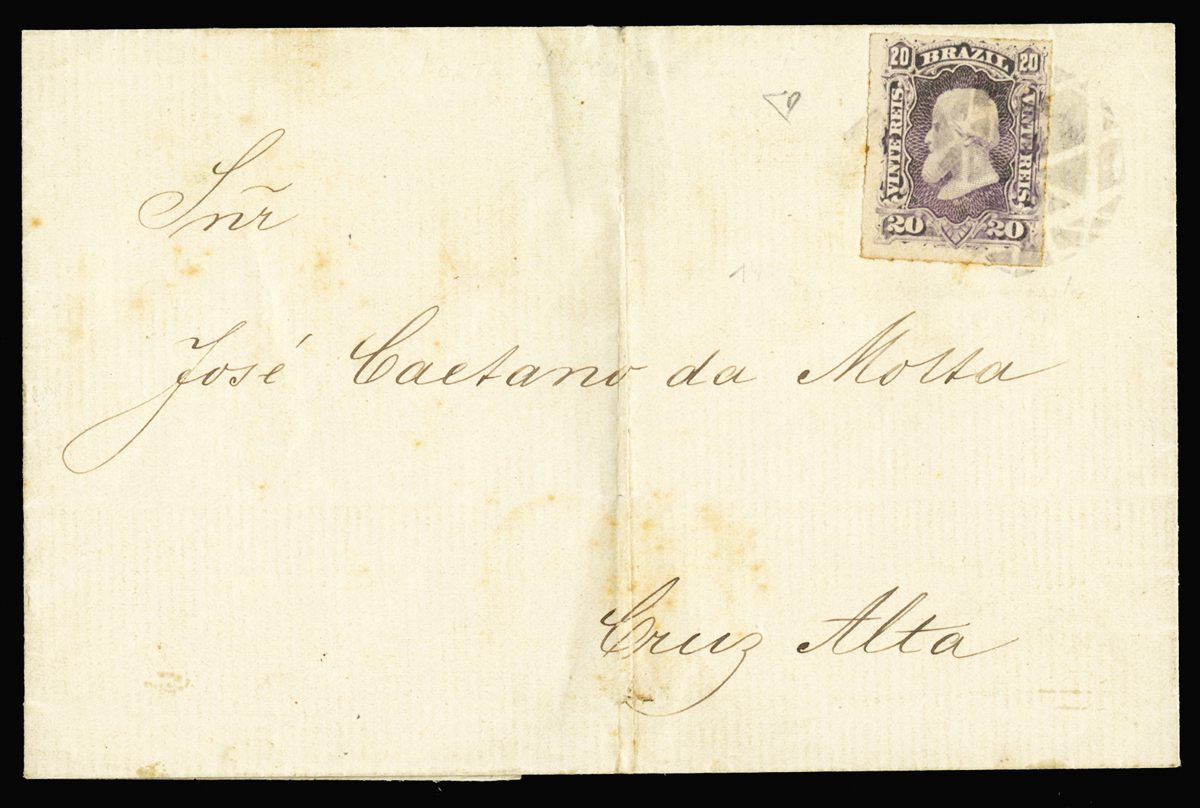 20 BRAZIL 20
VINTE REIS
VINTE REIS
20 20
Snr̃
José Caetano da Motta
Cruz Alta